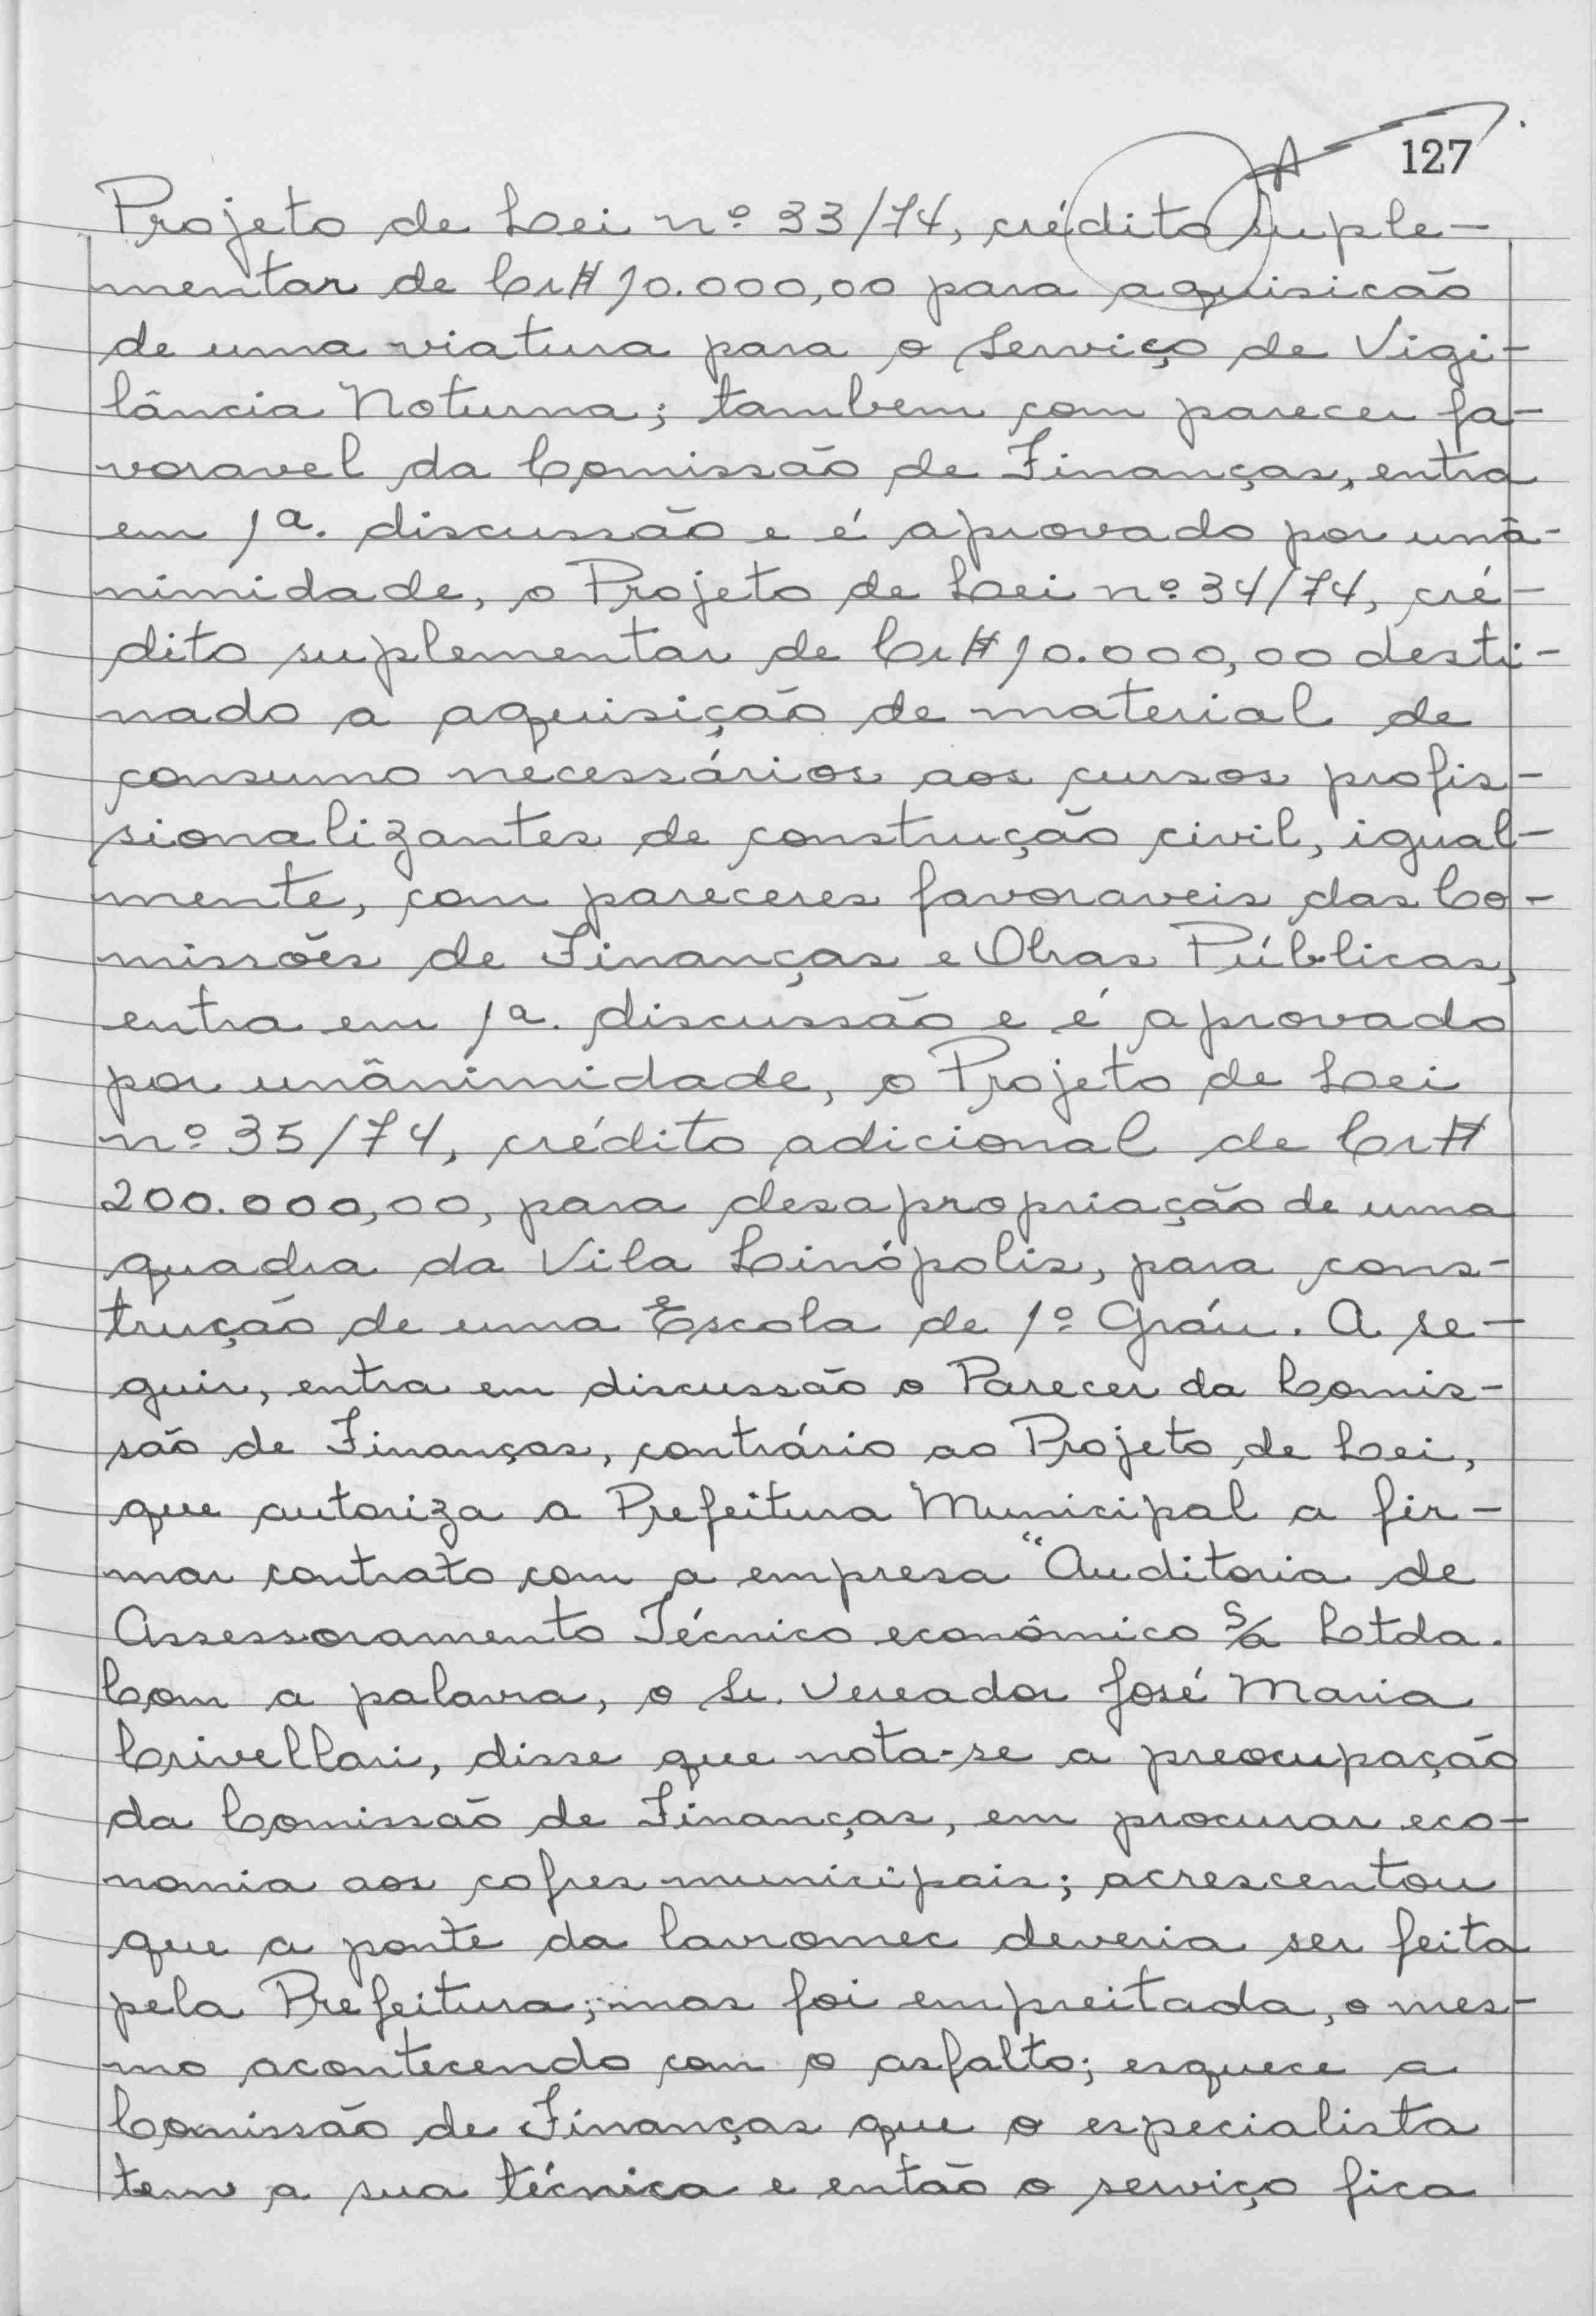 127
Projeto de Lei nº 33/74, crédito suple-
mentar de Cr$ 10.000,00 para aquisicão
de uma viatura para o Serviço de Vigi-
lância Noturna; tambem com parecer fa-
voravel da Comissão de Finanças, entra
em 1ª. discussão e é aprovado por unâ-
nimidade, o Projeto de Lei nº 34/74, cré-
dito suplementar de Cr$ 10.000,00 desti-
nado a aquisição de material de
consumo necessários aos cursos profis-
sionalizantes de construção civil, igual-
mente, com pareceres favoraveis das Co-
missões de Finanças e Obras Públicas,
entra em 1ª. discussão e é aprovado
por unânimidade, o Projeto de Lei
nº 35/74, crédito adicional de Cr$
200.000,00, para desapropriação de uma
quadra da Vila Linópolis, para cons-
trução de uma Escola de 1º Gráu. A se-
guir, entra em discussão o Parecer da Comis-
são de Finanças, contrário ao Projeto de Lei,
que autoriza a Prefeitura Municipal a fir-
mar contrato com a empresa "Auditoria de
Assessoramento Técnico econômico S/a Ltda.
Com a palavra, o Sr. Vereador José Maria
Crivellari, disse que nota-se a preocupação
da Comissão de Finanças, em procurar eco-
nomia aos cofres municipais; acrescentou
que a ponte da Cavromec deveria ser feita
pela Prefeitura; mas foi empreitada, o mes-
mo acontecendo com o asfalto; esquece a
Comissão de Finanças que o especialista
tem a sua técnica e então o serviço fica